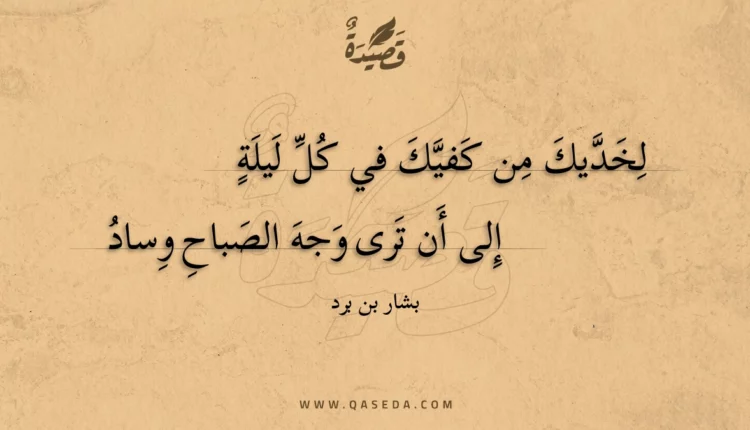 قَصِيدَةٌ
لِخَدَّيكَ مِن كَفيَّكَ في كُلِّ لَيلَةٍ
إِلى أَن تَرى وَجهَ الصَباحِ وِسادُ
بشار بن برد
WWW.QASEDA.COM